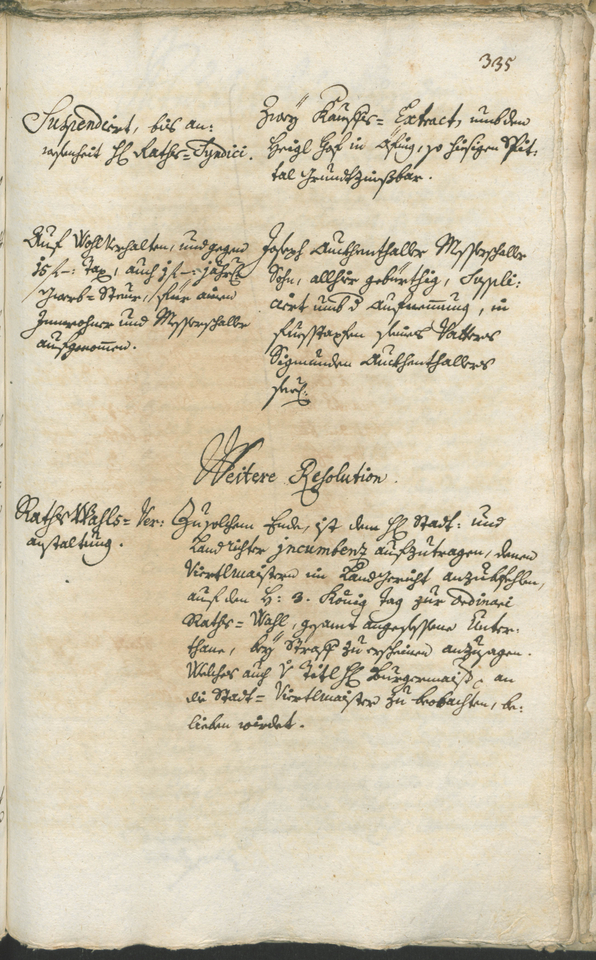 335
Suspendirt, bis an:
wesenheit H: Raths=Syndici.
Zwey Kauffs= Extract, umb den
Heigl Hof in , so hiesigen Spit:
tal Grundtzünßbar.
Auf Wohlverhalten, und gegen
15 f-: Tax, auch 1 f-: jährl:
gwerb=Steur, für einen
Innwohner und Messerschalle
aufgenommen.
Joseph Auchenthaller Messerschalle
Sohn, allhier gebürthig, Suppli:
cirt umb d aufnemmung, in
Fuesstapfen seines Vatters
Sigmunden Auchenthallers
seel:
Weitere Resolution.
Raths Wahls= Ver:
anstaltung.
Zu solchem Ende, ist dem H: Stadt: und
Landrichter incumbenz aufzutragen, denen
Viertlmaistern im Landgericht anzubefehlen,
auf den H: 3. König Tag zur Ordinari
Raths=Wahl, gesamt angesessene Unter:
thane, bey Straff zu erscheinen anzusagen.
Welches auch Titl H: Burgermaist: an
die Stadt=Viertlmaister zu beobachten, be:
lieben würdet.